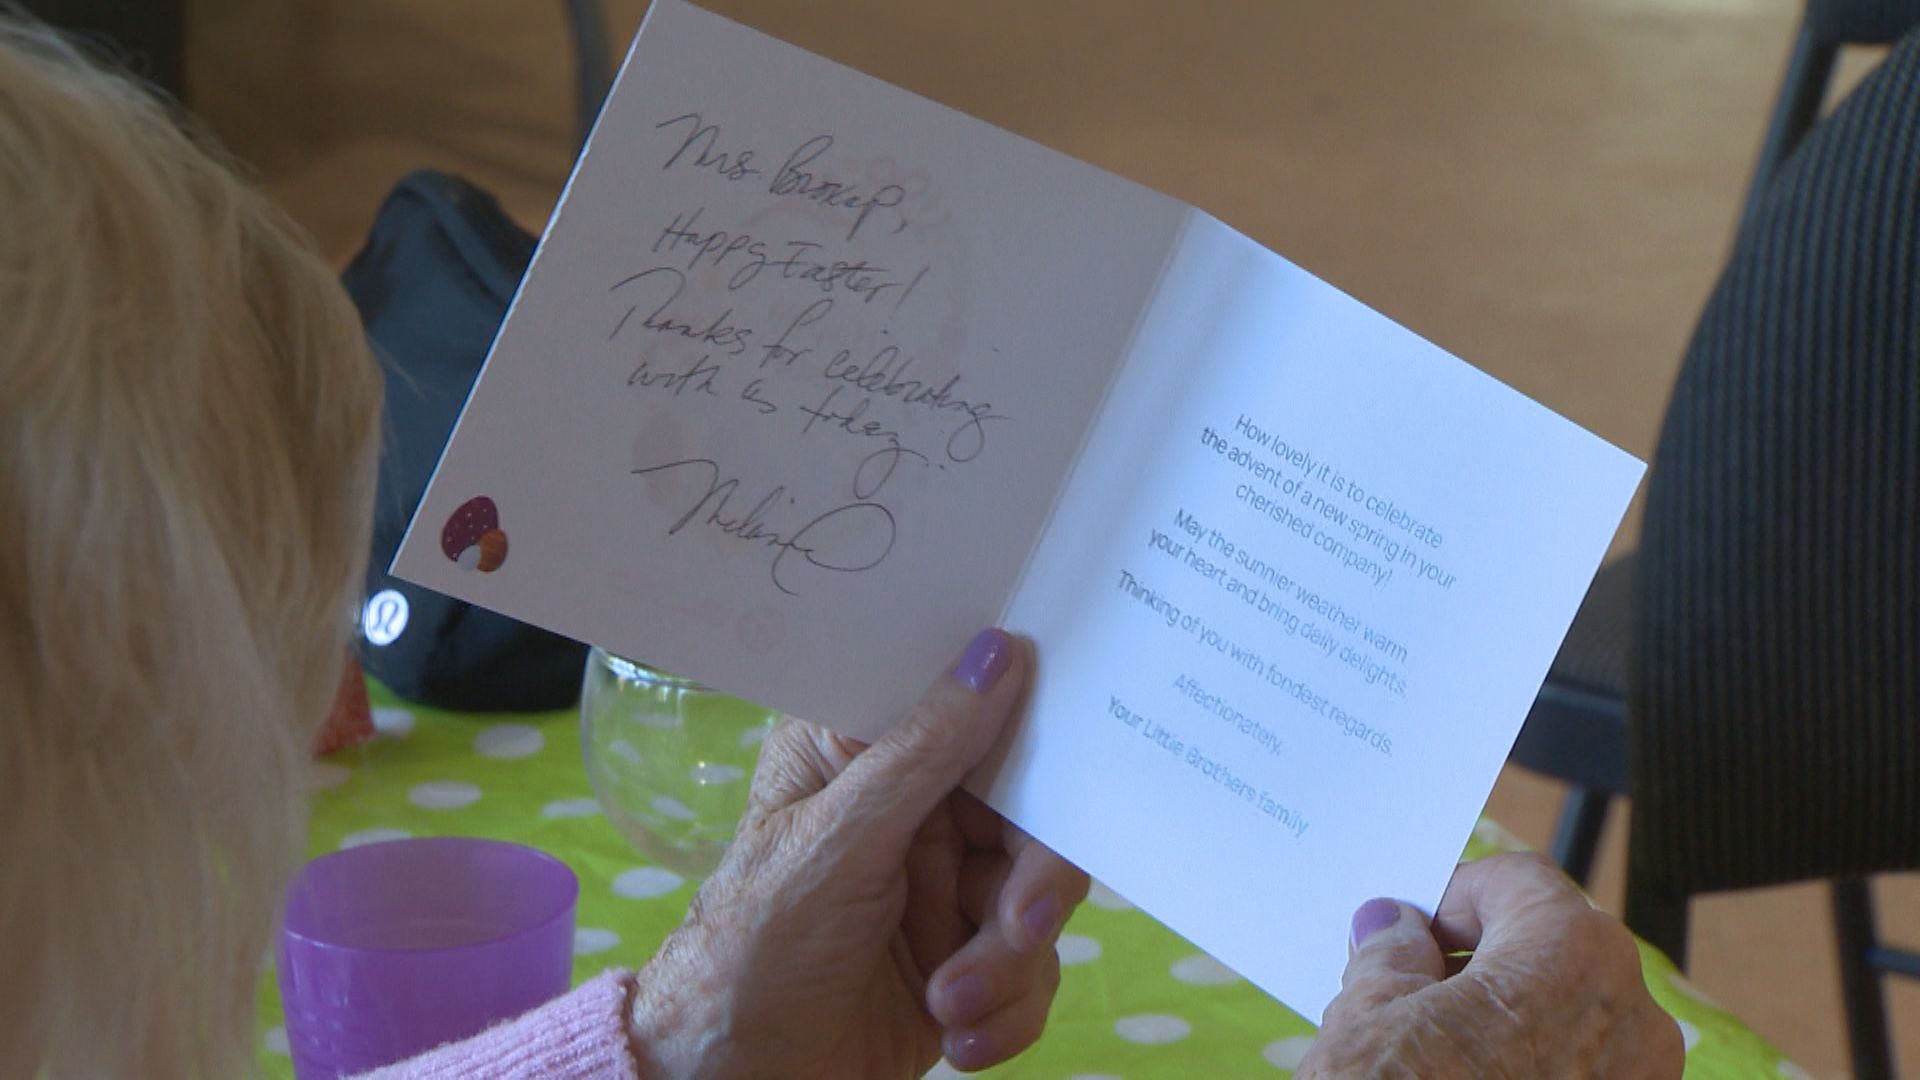 Mrs.
Happy Easter!
Thanks for celebrating
with us today.
Melanie
How lovely it is to celebrate
the advent of a new spring in your
cherished company!
May the sunnier weather warm
your heart and bring daily delights.
Thinking of you with fondest regards.
Affectionately,
Your Little Brothers family